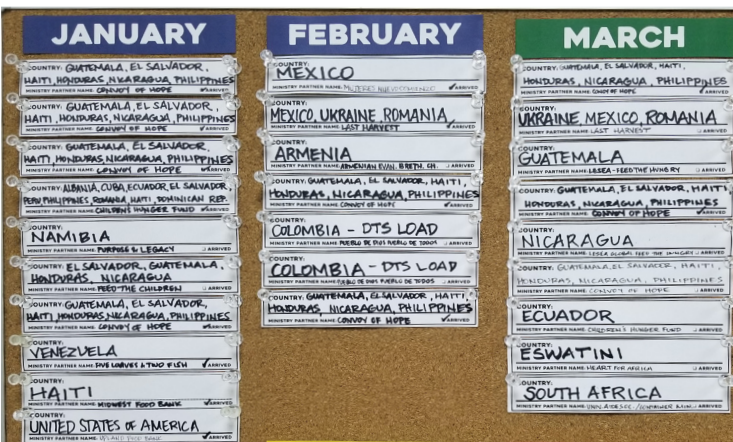 JANUARY
COUNTRY: GUATEMALA, EL SALVADOR,
HAITI, HONDURAS, NICARAGUA, PHILIPPINES
MINISTRY PARTNER NAME: CONVOY OF HOPE ARRIVED
COUNTRY: GUATEMALA, EL SALVADOR,
HAITI, HONDURAS, NICARAGUA, PHILIPPINES
MINISTRY PARTNER NAME: CONVOY OF HOPE ARRIVED
COUNTRY: GUATEMALA, EL SALVADOR,
HAITI, HONDURAS, NICARAGUA, PHILIPPINES
MINISTRY PARTNER NAME: CONVOY OF HOPE ARRIVED
COUNTRY: ALBANIA, CUBA, ECUADOR, EL SALVADOR,
PERU PHILIPPINES, ROMANIA, HAITI, DOMINICAN REP.
MINISTRY PARTNER NAME: CHILDREN'S HUNGER FUND ARRIVED
COUNTRY:
NAMIBIA
MINISTRY PARTNER NAME: PURPOSE & LEGACY ARRIVED
COUNTRY: EL SALVADOR, GUATEMALA,
HONDURAS, NICARAGUA
MINISTRY PARTNER NAME: FEED THE CHILDREN ARRIVED
COUNTRY: GUATEMALA, EL SALVADOR,
HAITI, HONDURAS, NICARAGUA, PHILIPPINES
MINISTRY PARTNER NAME: CONVOY OF HOPE ARRIVED
COUNTRY:
VENEZUELA
MINISTRY PARTNER NAME: FIVE LOAVES & TWO FISH ARRIVED
COUNTRY:
HAITI
MINISTRY PARTNER NAME: MIDWEST FOOD BANK ARRIVED
COUNTRY:
UNITED STATES OF AMERICA
MINISTRY PARTNER NAME: UPLAND FOOD BANK ARRIVED
FEBRUARY
COUNTRY:
MEXICO
MINISTRY PARTNER NAME: ARRIVED
COUNTRY:
MEXICO, UKRAINE, ROMANIA
MINISTRY PARTNER NAME: LAST HARVEST ARRIVED
COUNTRY:
ARMENIA
MINISTRY PARTNER NAME: ARMENIAN EVAN. BRETH. CH. ARRIVED
COUNTRY: GUATEMALA, EL SALVADOR, HAITI,
HONDURAS, NICARAGUA, PHILIPPINES
MINISTRY PARTNER NAME: CONVOY OF HOPE ARRIVED
COUNTRY:
COLOMBIA - DTS LOAD
MINISTRY PARTNER NAME: PUEBLO DE DIOS PUEBLO DE TODOS ARRIVED
COUNTRY:
COLOMBIA - DTS LOAD
MINISTRY PARTNER NAME: PUEBLO DE DIOS PUEBLO DE TODOS ARRIVED
COUNTRY: GUATEMALA, EL SALVADOR, HAITI,
HONDURAS, NICARAGUA, PHILIPPINES
MINISTRY PARTNER NAME: CONVOY OF HOPE ARRIVED
MARCH
COUNTRY: GUATEMALA, EL SALVADOR, HAITI,
HONDURAS, NICARAGUA, PHILIPPINES
MINISTRY PARTNER NAME: CONVOY OF HOPE ARRIVED
COUNTRY:
UKRAINE, MEXICO, ROMANIA
MINISTRY PARTNER NAME: LAST HARVEST ARRIVED
COUNTRY:
GUATEMALA
MINISTRY PARTNER NAME: LESEA - FEED THE HUNGRY ARRIVED
COUNTRY: GUATEMALA, EL SALVADOR, HAITI
HONDURAS, NICARAGUA, PHILIPPINES
MINISTRY PARTNER NAME: CONVOY OF HOPE ARRIVED
COUNTRY:
NICARAGUA
MINISTRY PARTNER NAME: LESEA GLOBAL FEED THE HUNGRY ARRIVED
COUNTRY: GUATEMALA, EL SALVADOR, HAITI,
HONDURAS, NICARAGUA, PHILIPPINES
MINISTRY PARTNER NAME: CONVOY OF HOPE ARRIVED
COUNTRY:
ECUADOR
MINISTRY PARTNER NAME: CHILDREN'S HUNGER FUND ARRIVED
COUNTRY:
ESWATINI
MINISTRY PARTNER NAME: HEART FOR AFRICA ARRIVED
COUNTRY:
SOUTH AFRICA
MINISTRY PARTNER NAME: ARRIVED